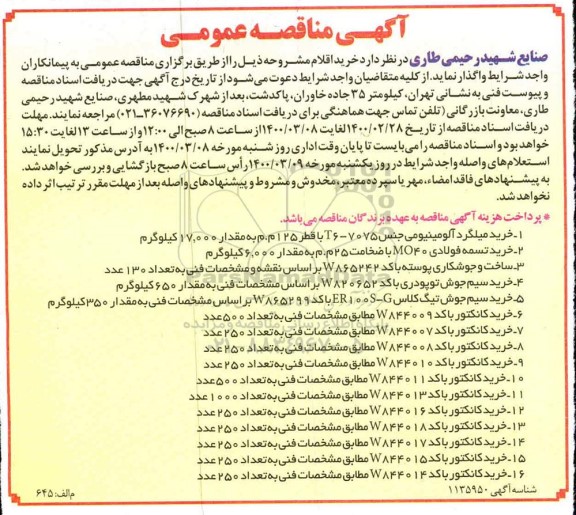 آگهی مناقصه عمومی
صنایع شهید رحیمی طاری در نظر دارد خرید اقلام مشروحه ذیل را از طریق برگزاری مناقصه عمومی به پیمانکاران
واجد شرایط واگذار نماید. از کلیه متقاضیان واجد شرایط دعوت می‌شود از تاریخ درج آگهی جهت دریافت اسناد مناقصه
و پیوست فنی به نشانی تهران، کیلومتر ۳۵ جاده خاوران، پاکدشت، بعد از شهرک شهید مطهری، صنایع شهید رحیمی
طاری، معاونت بازرگانی (تلفن تماس جهت هماهنگی برای دریافت اسناد مناقصه ۳۶۰۷۶۶۹۰-۰۲۱) مراجعه نمایند. مهلت
دریافت اسناد مناقصه از تاریخ ۱۴۰۰/۰۲/۲۸ لغایت ۱۴۰۰/۰۳/۰۸ از ساعت ۸ صبح الی ۱۲:۰۰ و از ساعت ۱۳ لغایت ۱۵:۳۰
خواهد بود و اسناد مناقصه را می‌بایست تا پایان وقت اداری روز شنبه مورخه ۱۴۰۰/۰۳/۰۸ به آدرس مذکور تحویل نمایند
استعلام‌های واصله واجد شرایط در روز یکشنبه مورخه ۱۴۰۰/۰۳/۰۹ رأس ساعت ۸ صبح بازگشایی و بررسی خواهد شد.
به پیشنهادهای فاقد امضاء، مهر یا سپرده معتبر، مخدوش و مشروط و پیشنهادهای واصله بعد از مهلت مقرر ترتیب اثر داده
نخواهد شد.
* پرداخت هزینه آگهی مناقصه به عهده برندگان مناقصه می‌باشد.
۱-خرید میلگرد آلومینیومی جنس T۶-۷۰۷۵ با قطر ۱۲۵م.م به مقدار ۱۷,۰۰۰ کیلوگرم
۲-خرید تسمه فولادی MO۴۰ با ضخامت ۲۵م.م به مقدار ۶,۰۰۰ کیلوگرم
۳-ساخت و جوشکاری پوسته با کد W۸۶۵۲۴۲ بر اساس نقشه و مشخصات فنی به تعداد ۱۳۰ عدد
۴-خرید سیم جوش توپودری با کد W۸۲۰۶۵۲ بر اساس مشخصات فنی به مقدار ۶۵۰ کیلوگرم
۵-خرید سیم جوش تیگ کلاس ER۱۰۰S-G با کد W۸۶۵۲۹۹ بر اساس مشخصات فنی به مقدار ۳۵۰ کیلوگرم
۶-خرید کانکتور با کد W۸۴۴۰۰۹ مطابق مشخصات فنی به تعداد ۵۰۰ عدد
۷-خرید کانکتور با کد W۸۴۴۰۰۷ مطابق مشخصات فنی به تعداد ۲۵۰ عدد
۸-خرید کانکتور با کد W۸۴۴۰۰۸ مطابق مشخصات فنی به تعداد ۲۵۰ عدد
۹-خرید کانکتور با کد W۸۴۴۰۱۰ مطابق مشخصات فنی به تعداد ۲۵۰ عدد
۱۰-خرید کانکتور با کد W۸۴۴۰۱۱ مطابق مشخصات فنی به تعداد ۵۰۰ عدد
۱۱-خرید کانکتور با کد W۸۴۴۰۱۳ مطابق مشخصات فنی به تعداد ۱۰۰۰ عدد
۱۲-خرید کانکتور با کد W۸۴۴۰۱۶ مطابق مشخصات فنی به تعداد ۲۵۰ عدد
۱۳-خرید کانکتور با کد W۸۴۴۰۱۸ مطابق مشخصات فنی به تعداد ۲۵۰ عدد
۱۴-خرید کانکتور با کد W۸۴۴۰۱۷ مطابق مشخصات فنی به تعداد ۲۵۰ عدد
۱۵-خرید کانکتور با کد W۸۴۴۰۱۵ مطابق مشخصات فنی به تعداد ۲۵۰ عدد
۱۶-خرید کانکتور با کد W۸۴۴۰۱۴ مطابق مشخصات فنی به تعداد ۲۵۰ عدد
شناسه آگهی ۱۱۳۵۹۵۰
م الف: ۶۴۵